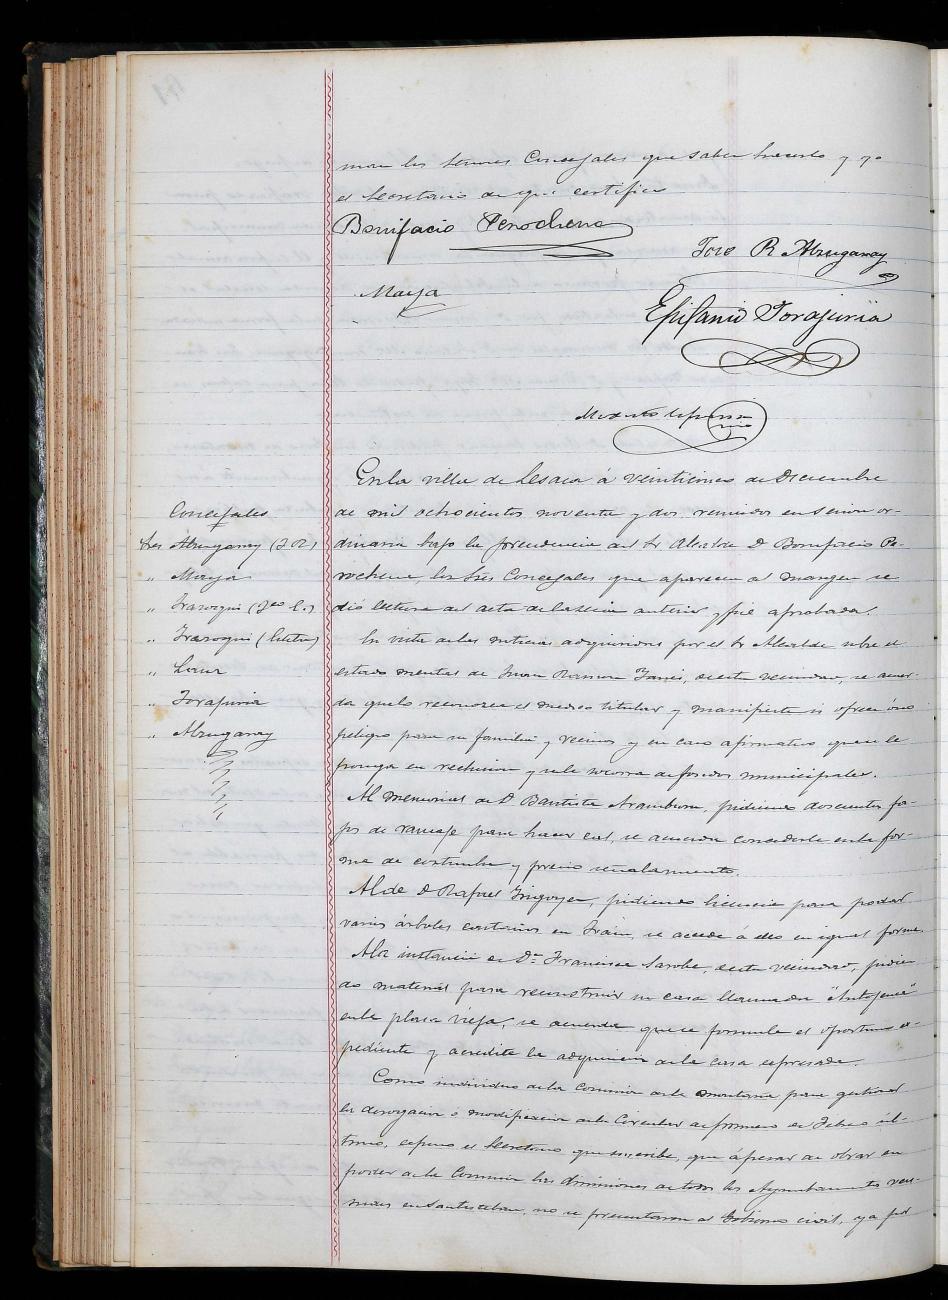 man los Señores Concejales que saben hacerlo y yo
el Secretario de que certifico
Bonifacio Perochena
José R. Abrugaray
Maya
Epifanio Torajuria
Modesto
En la villa de Lesaca á veinticinco de Diciembre
de mil ochocientos noventa y dos, reunidos en sesion or-
dinaria bajo la presidencia del Sr Alcalde D Bonifacio Pe-
rochena, los Sres Concejales que aparecen al margen se
dió lectura del acta de la sesion anterior y fué aprobada.
Concejales
Sres Abrugaray (J R)
" Maya
" Irazoqui (Fco )
" Irazoqui
"
" Torajuria
" Abrugaray
En vista de las noticias adquiridas por el Sr Alcalde sobre el
estado mental de Juan Ramon de esta vecindad, se acuer-
da que lo reconozca el medico titular y manifieste si ofrece ó no
peligro para su familia y vecinos y en caso afirmativo que se le
ponga en reclusion y se le socorra de fondos municipales.
Al memorial de D Bautista Aramburu, pidiendo doscientas fa-
jos de ramaje para hacer cal, se acuerda concederle en la for-
ma de costumbre y previo señalamiento.
Al de D Rafael Irigoyen, pidiendo licencia para podar
varios árboles castaños en se accede á ello en igual forma.
A la instancia de Dª Francisca Sarobe, de esta vecindad, pidien-
do material para reconstruir su casa llamada
en la plaza vieja, se acuerda que se formule el oportuno es-
pediente y acredite la adquisicion de la casa espresada.
Como individuo de la Comision de la montaña para gestionar
la derogacion ó modificacion de la Circular de primero de Febrero úl-
timo, espuso el Secretario que suscribe, que apesar de obrar en
poder de la Comision las dimisiones de todos los Ayuntamientos reu-
nidos en Santesteban, no se presentaron al Gobierno civil, ya por